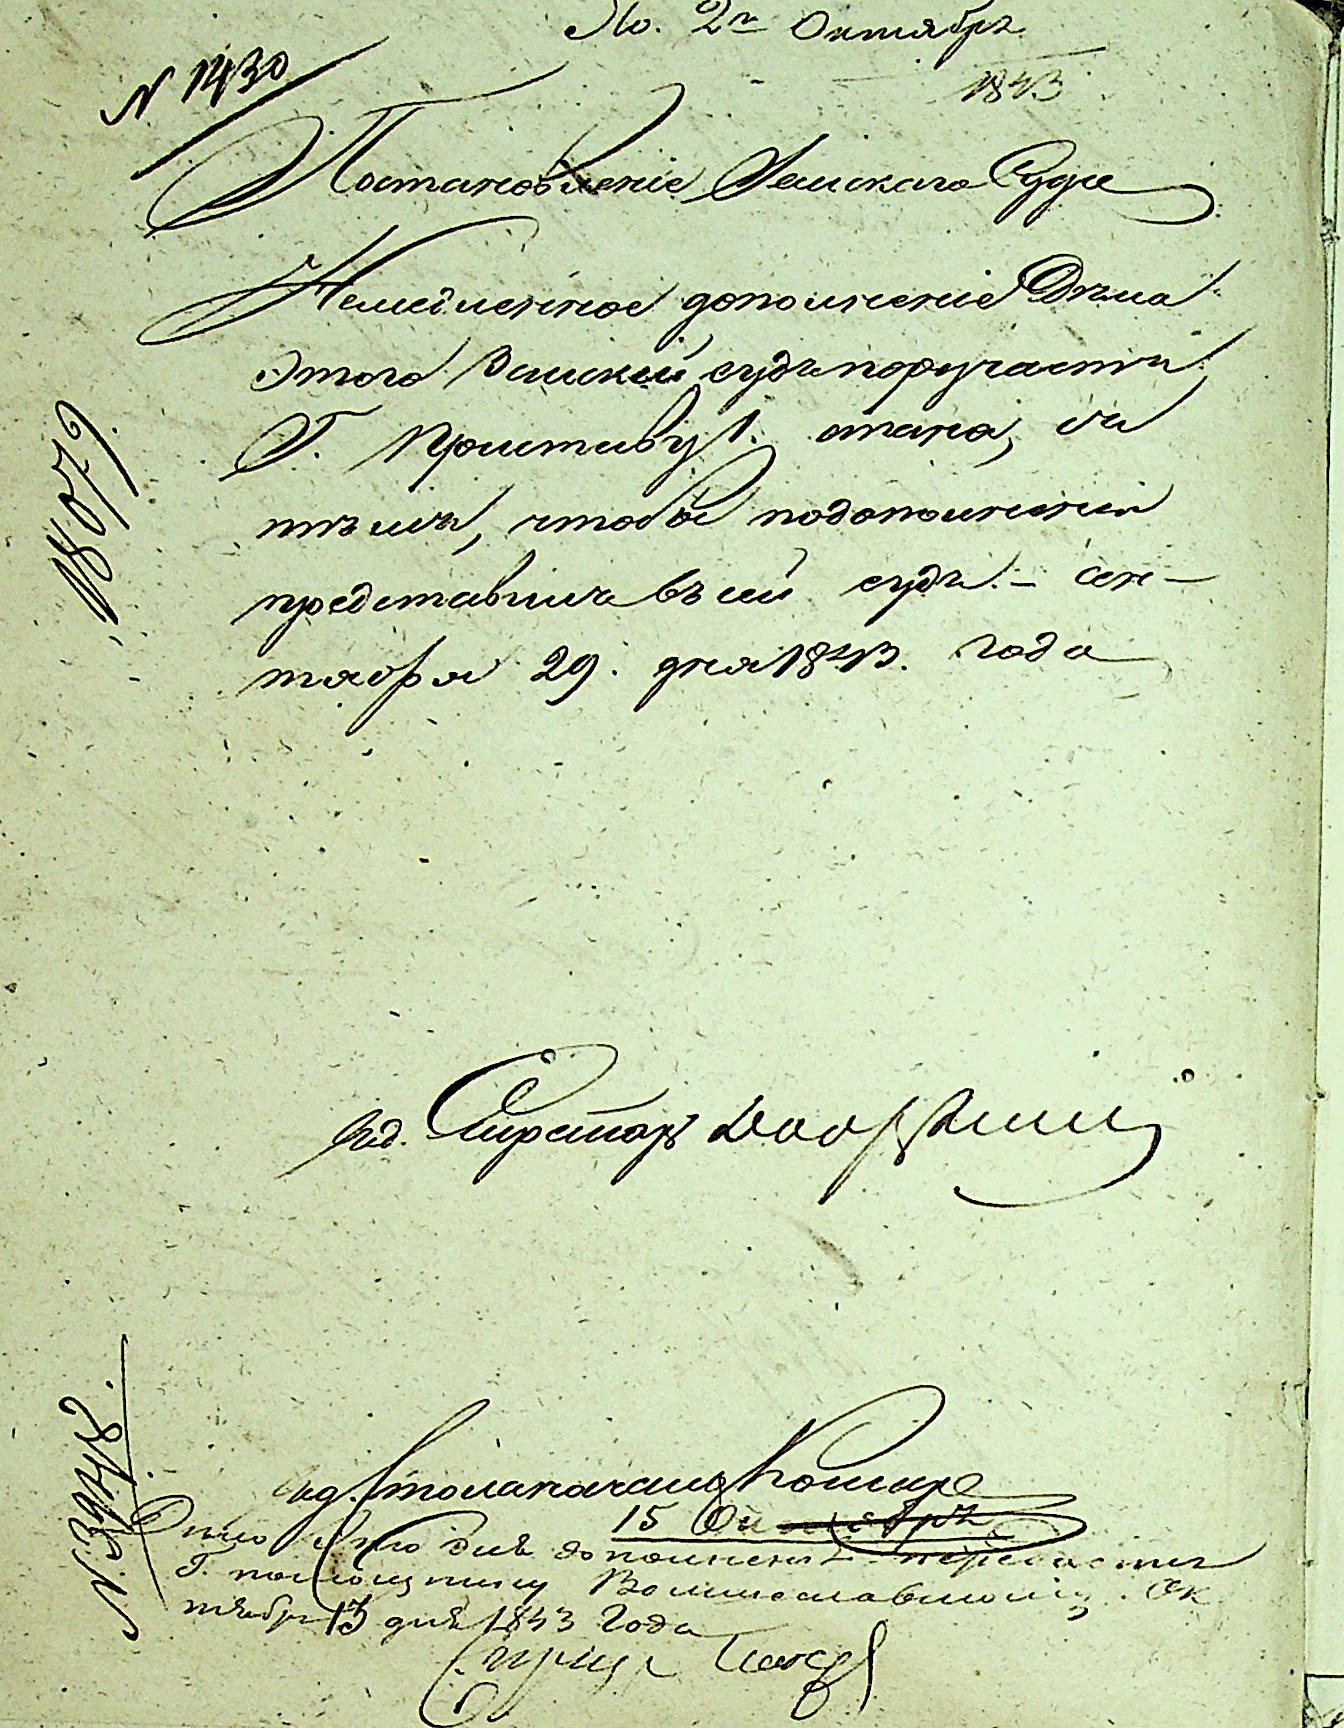 По. 2го Октября
1843
N 1430
Постановленіе Земскаго Суда
Немедленное дополненіе Дѣла
этого Земскій судъ поручаетъ
Г. Приставу 1. стана, съ
тѣмъ, чтобы по дополненіи
представилъ въ сей судъ. – Сен-
тября 29. дня 1843. года
18079.
Секретарь
N. 3948.
Столоначальникъ
15 Октября
Дѣло это для дополненія передать
Г. помощнику Ок
тября 13 дня 1843 года